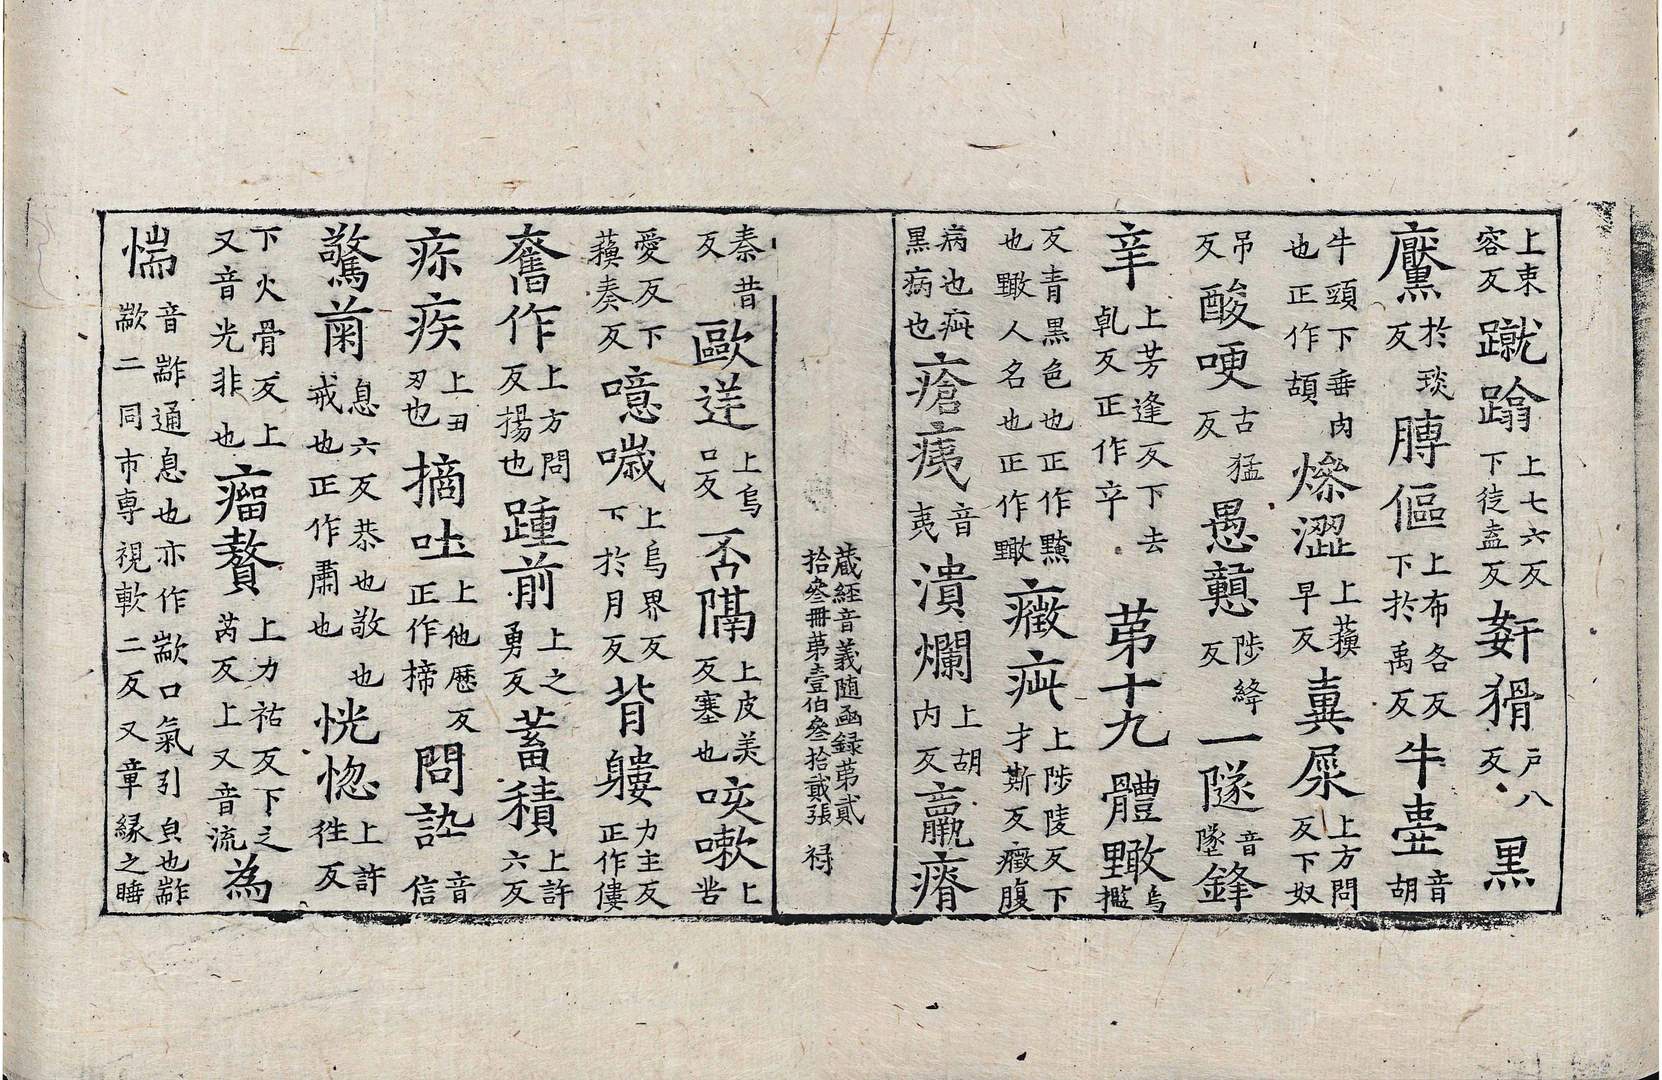 上束容反蹴蹹上七六反下徒盍反姧猾戶八反黒
黶於琰反膊傴上布各反下於禹反牛壷音胡
牛頸下垂肉也正作頡㷮澀上蘓早反糞屎上方問反下奴
吊反酸哽古猛反愚戇陟絳反一隧音墜鋒
䇂上芳逢反下去乹反正作䇂苐十九體䵟烏㩜
反青黒色也正作黶也䵟人名也正作䵟癥疵上陟陵反下才斯反癥腹
病也疵黒病也瘡痍音夷潰爛上胡内反羸瘠
秦昔反歐逆上烏口反否隔上皮美反塞也咳嗽上苦
愛反下蘓奏反噫噦上烏界反下於月反背軁力主反正作僂
奮作上方問反揚也踵前上之勇反蓄積上許六反
疢疾上丑刃也摘吐上他歴反正作揥問訫音信
驚䔍息六反恭也敬也戒也正作肅也恍惚上許往反
下火骨反上又音光非也瘤贅上力祐反下之芮反上又音流為
惴音歂通息也亦作歂口氣引皃也歂歂二同市専視軟二反又章縁之睡
蔵経音義随函録苐貳拾叄冊苐壹伯叄拾貳張　禄